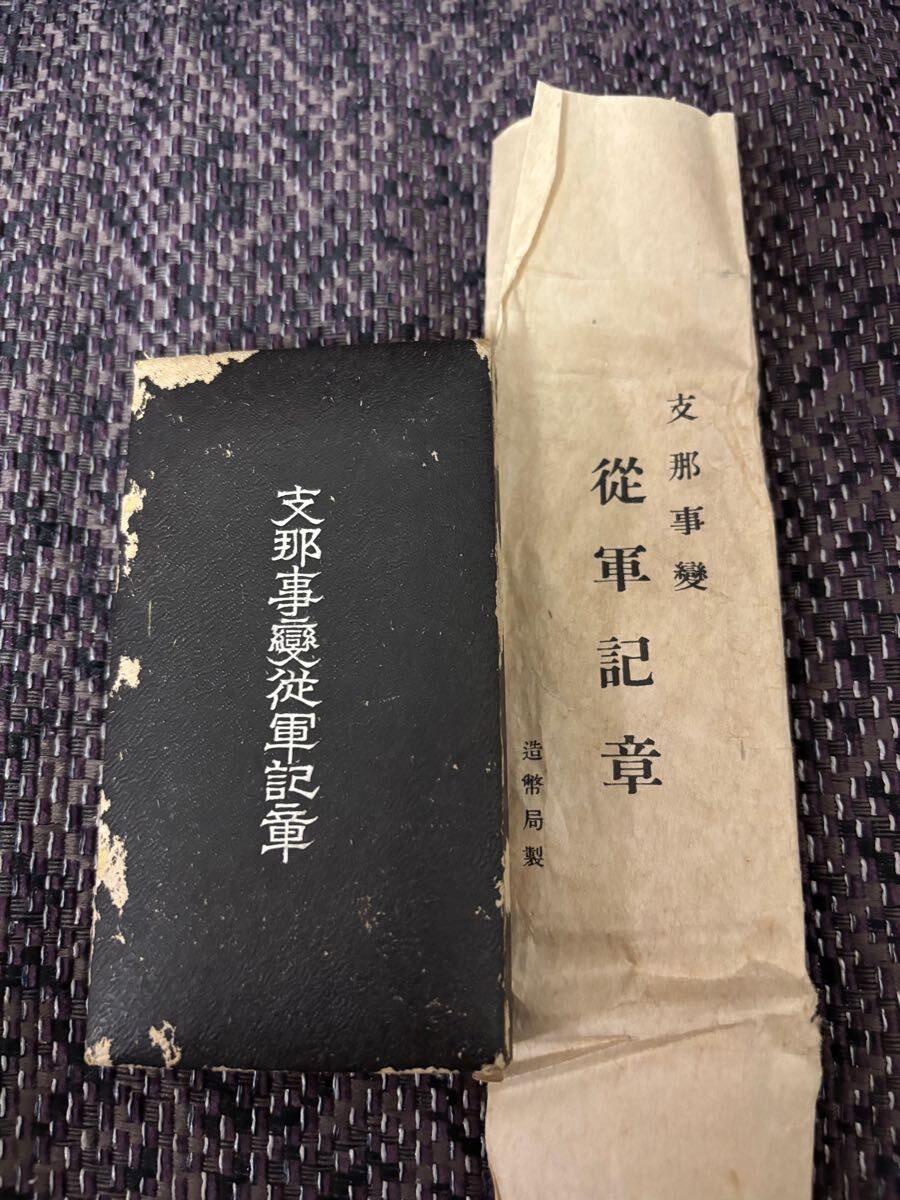 支那事變従軍記章
支那事變
從軍記章
造幣局製